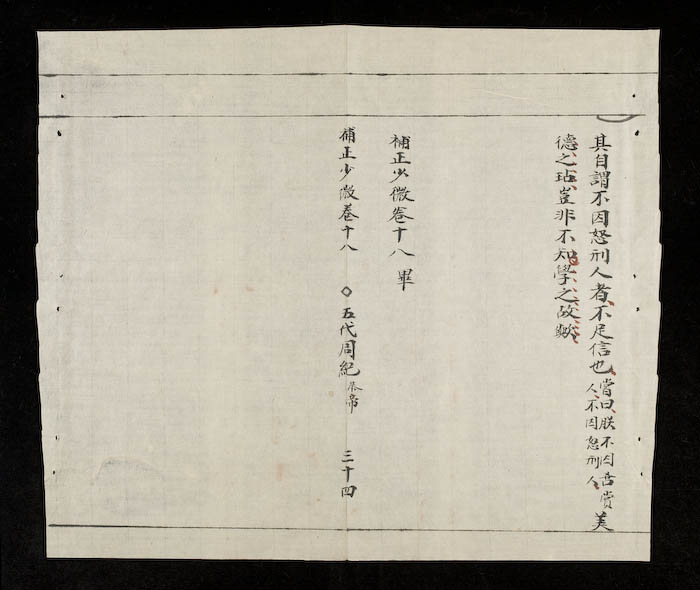 其自謂不因怒刑人者不足信也嘗曰朕不因喜賞人不因怒刑人美
德之玷豈非不知學之故歟
補正少微卷十八畢
補正少微卷十八 ◇ 五代周紀恭帝 三十四